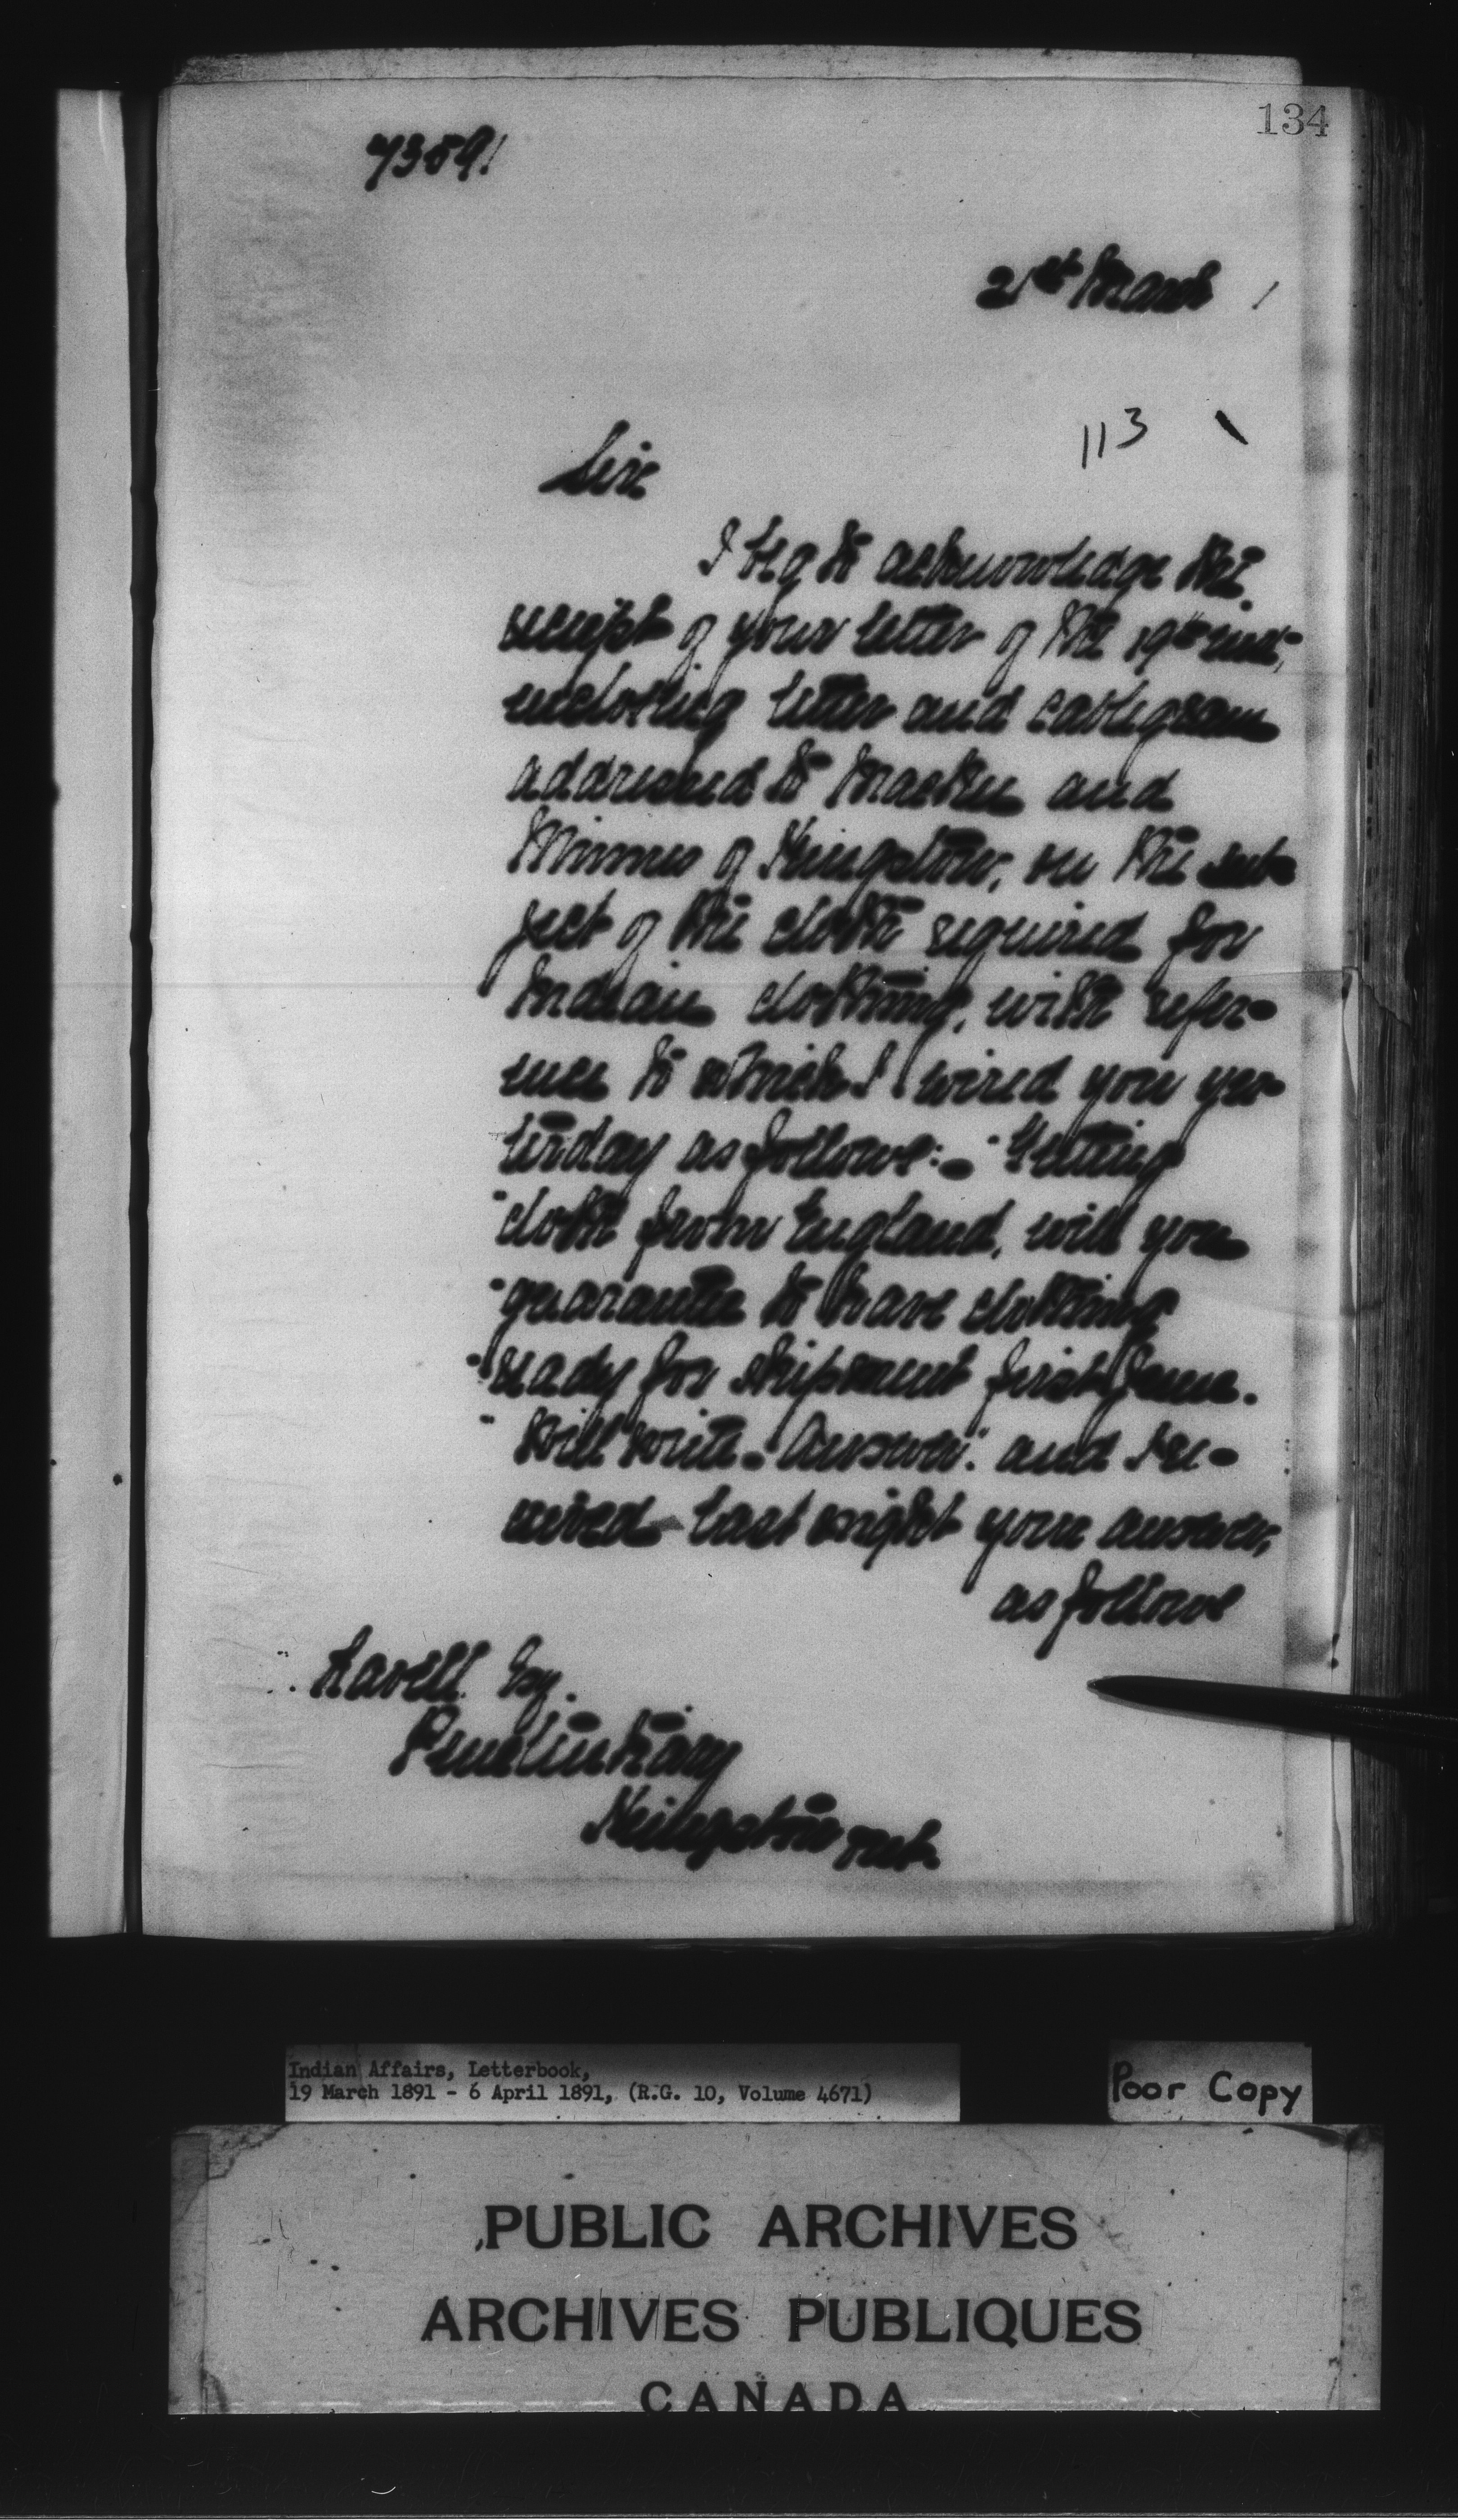 134
21st March
113
Sir
I beg to acknowledge the
receipt of your letter of the 19th inst,
enclosing letter and cablegram
addressed to and
Minnes of Kingston, on the sub
ject of the cloth required for
Indian clothing, with refer-
ence to which I wired you yes
terday as follows:- "Getting
"cloth from England, will you
"guarantee to have clothing
"ready for shipment first June.
"Will write - Answer." and I re-
ceived last night your answer,
as follows
Lavell Esq.
Penetentiary
Kingston Ont.
Indian Affairs, Letterbook,
19 March 1891 - 6 April 1891, (R.G. 10, Volume 4671)
Poor Copy
PUBLIC ARCHIVES
ARCHIVES PUBLIQUES
CANADA